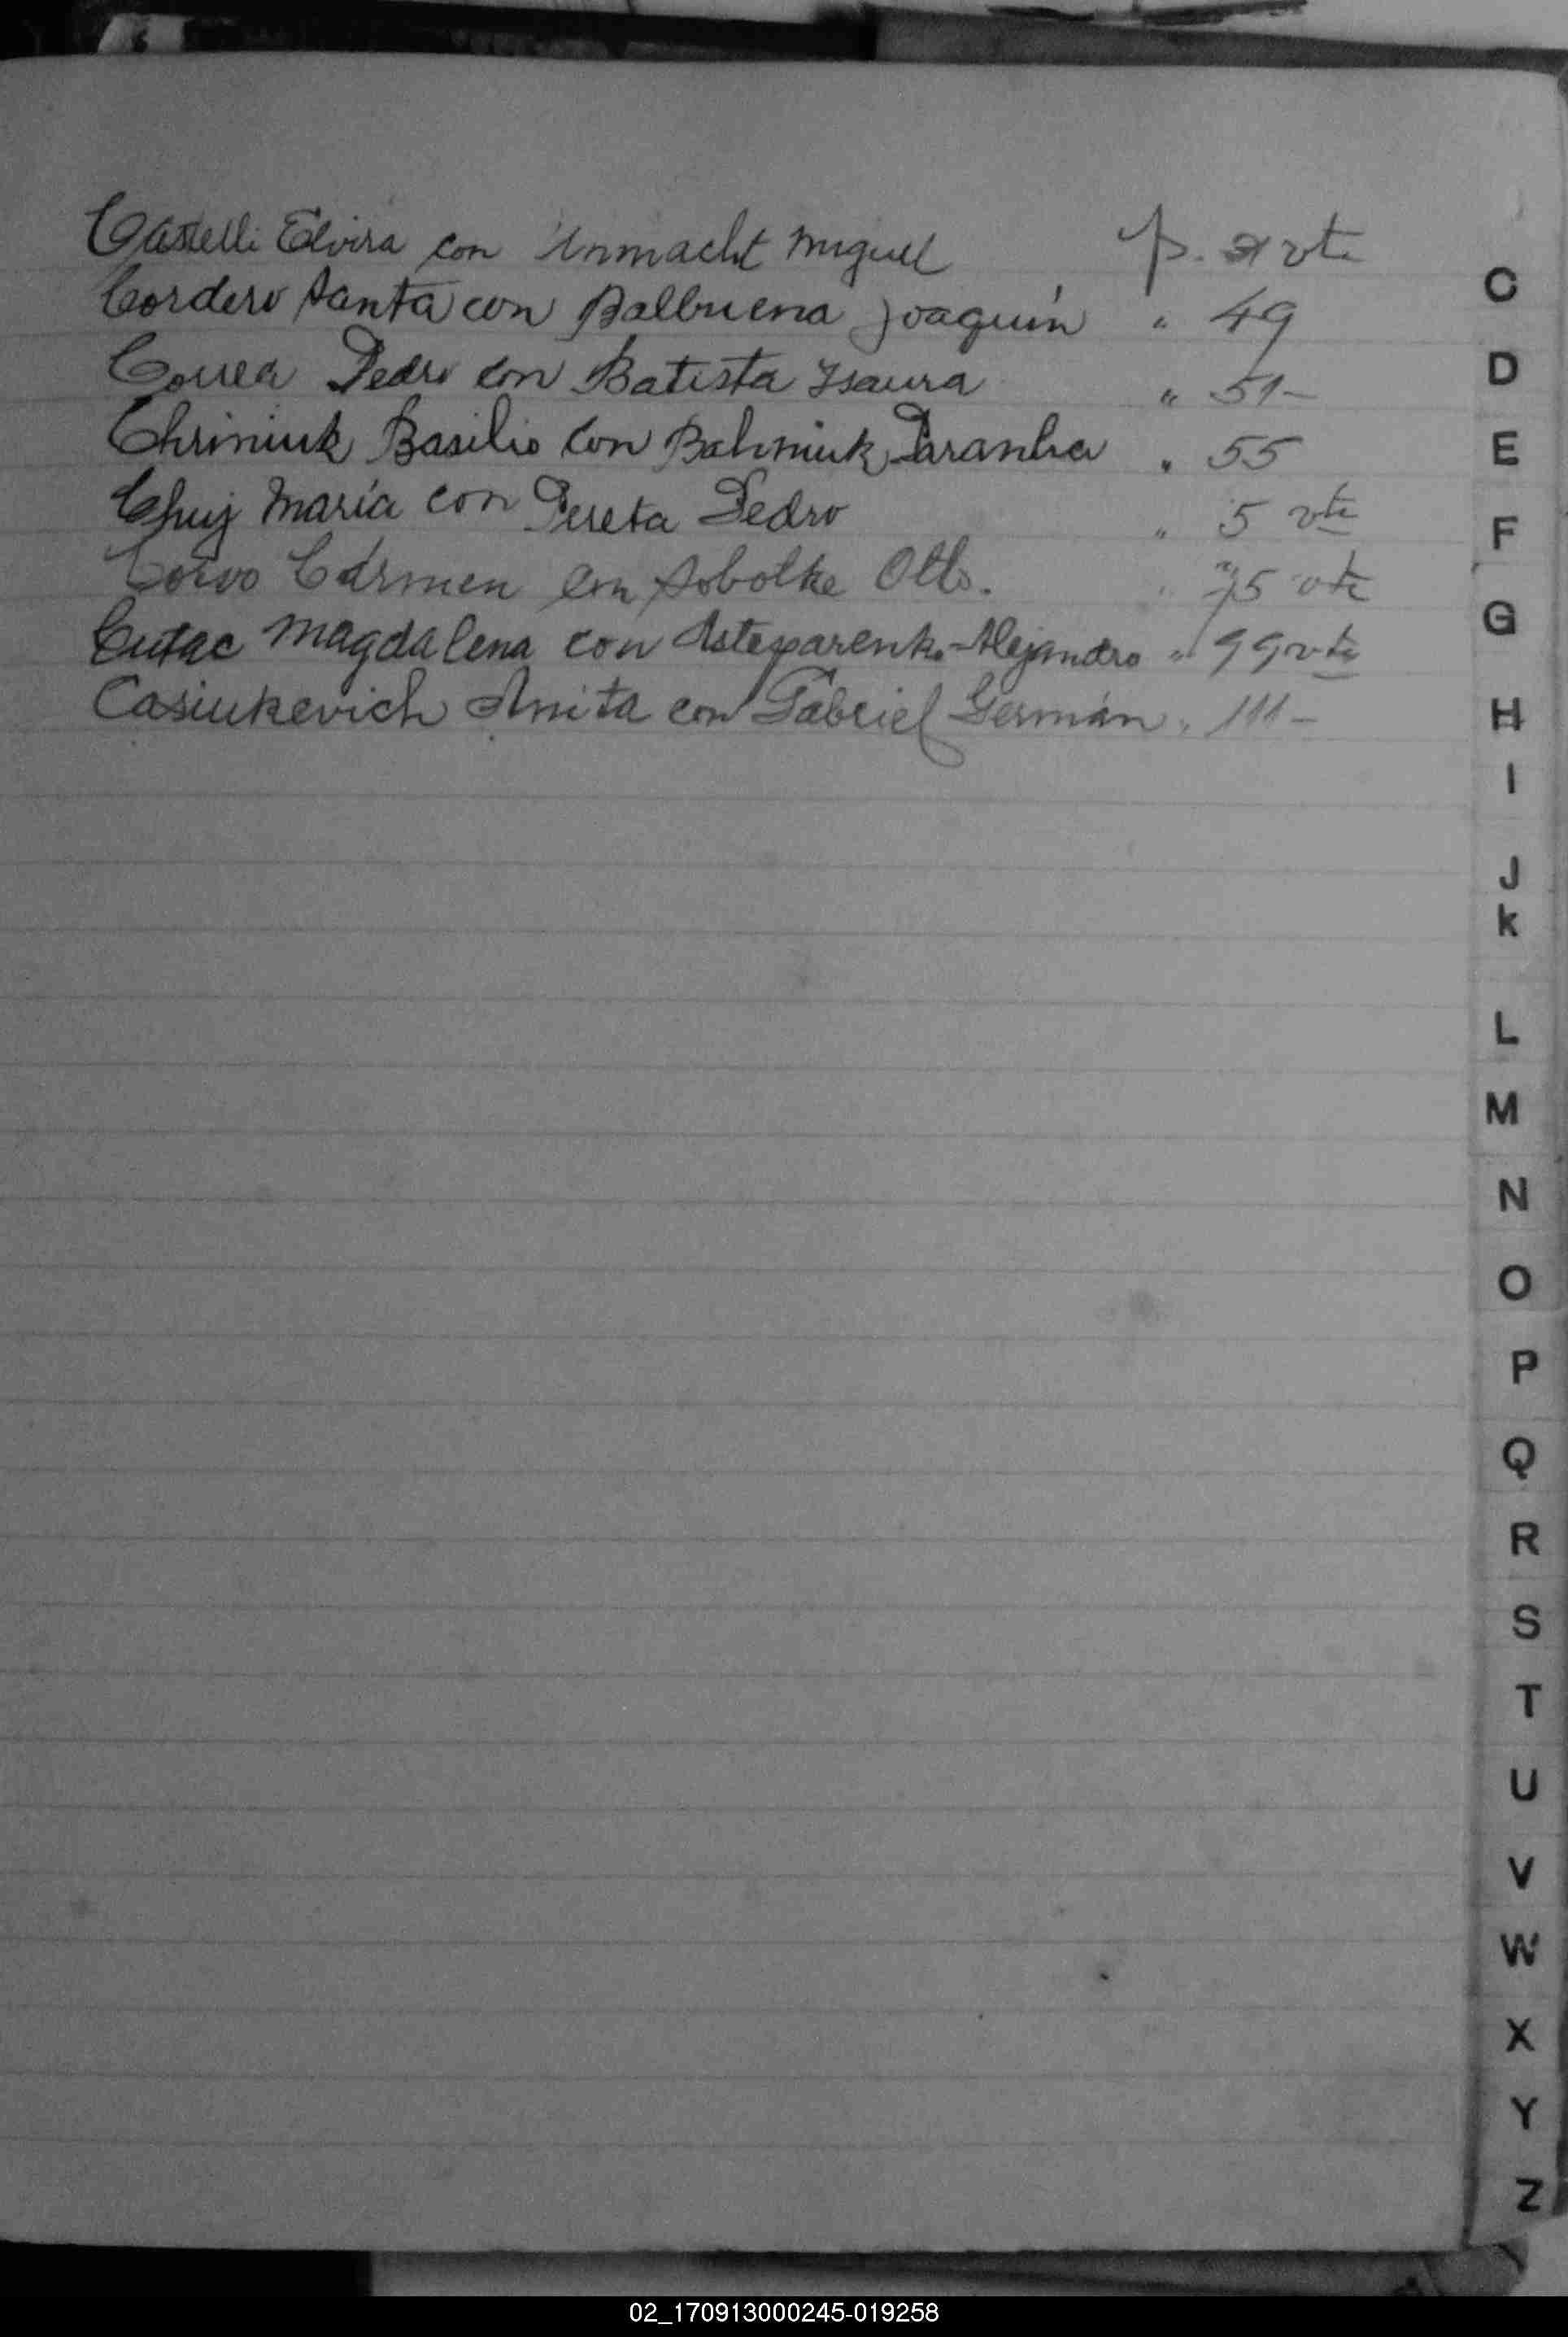 Castelli Elvira con Unmacht Miguel p. vta
Cordero Santa con Balbuena Joaquín " 49
Correa Pedro con Batista Isaura " 51-
Chriniuk Basilio con Bahniuk Paranka " 55
Chuj María con Pereta Pedro " 5 vta
Corvo Cármen con Sobolke Otto. " 75 vta
Cutac Magdalena con Astaparenko Alejandro " 99 vta
Casiukevich Anita con Gabriel Germán " 111-
C
D
E
F
G
H
I
J
K
L
M
N
O
P
Q
R
S
T
U
V
W
X
Y
Z
02_170913000245-019258